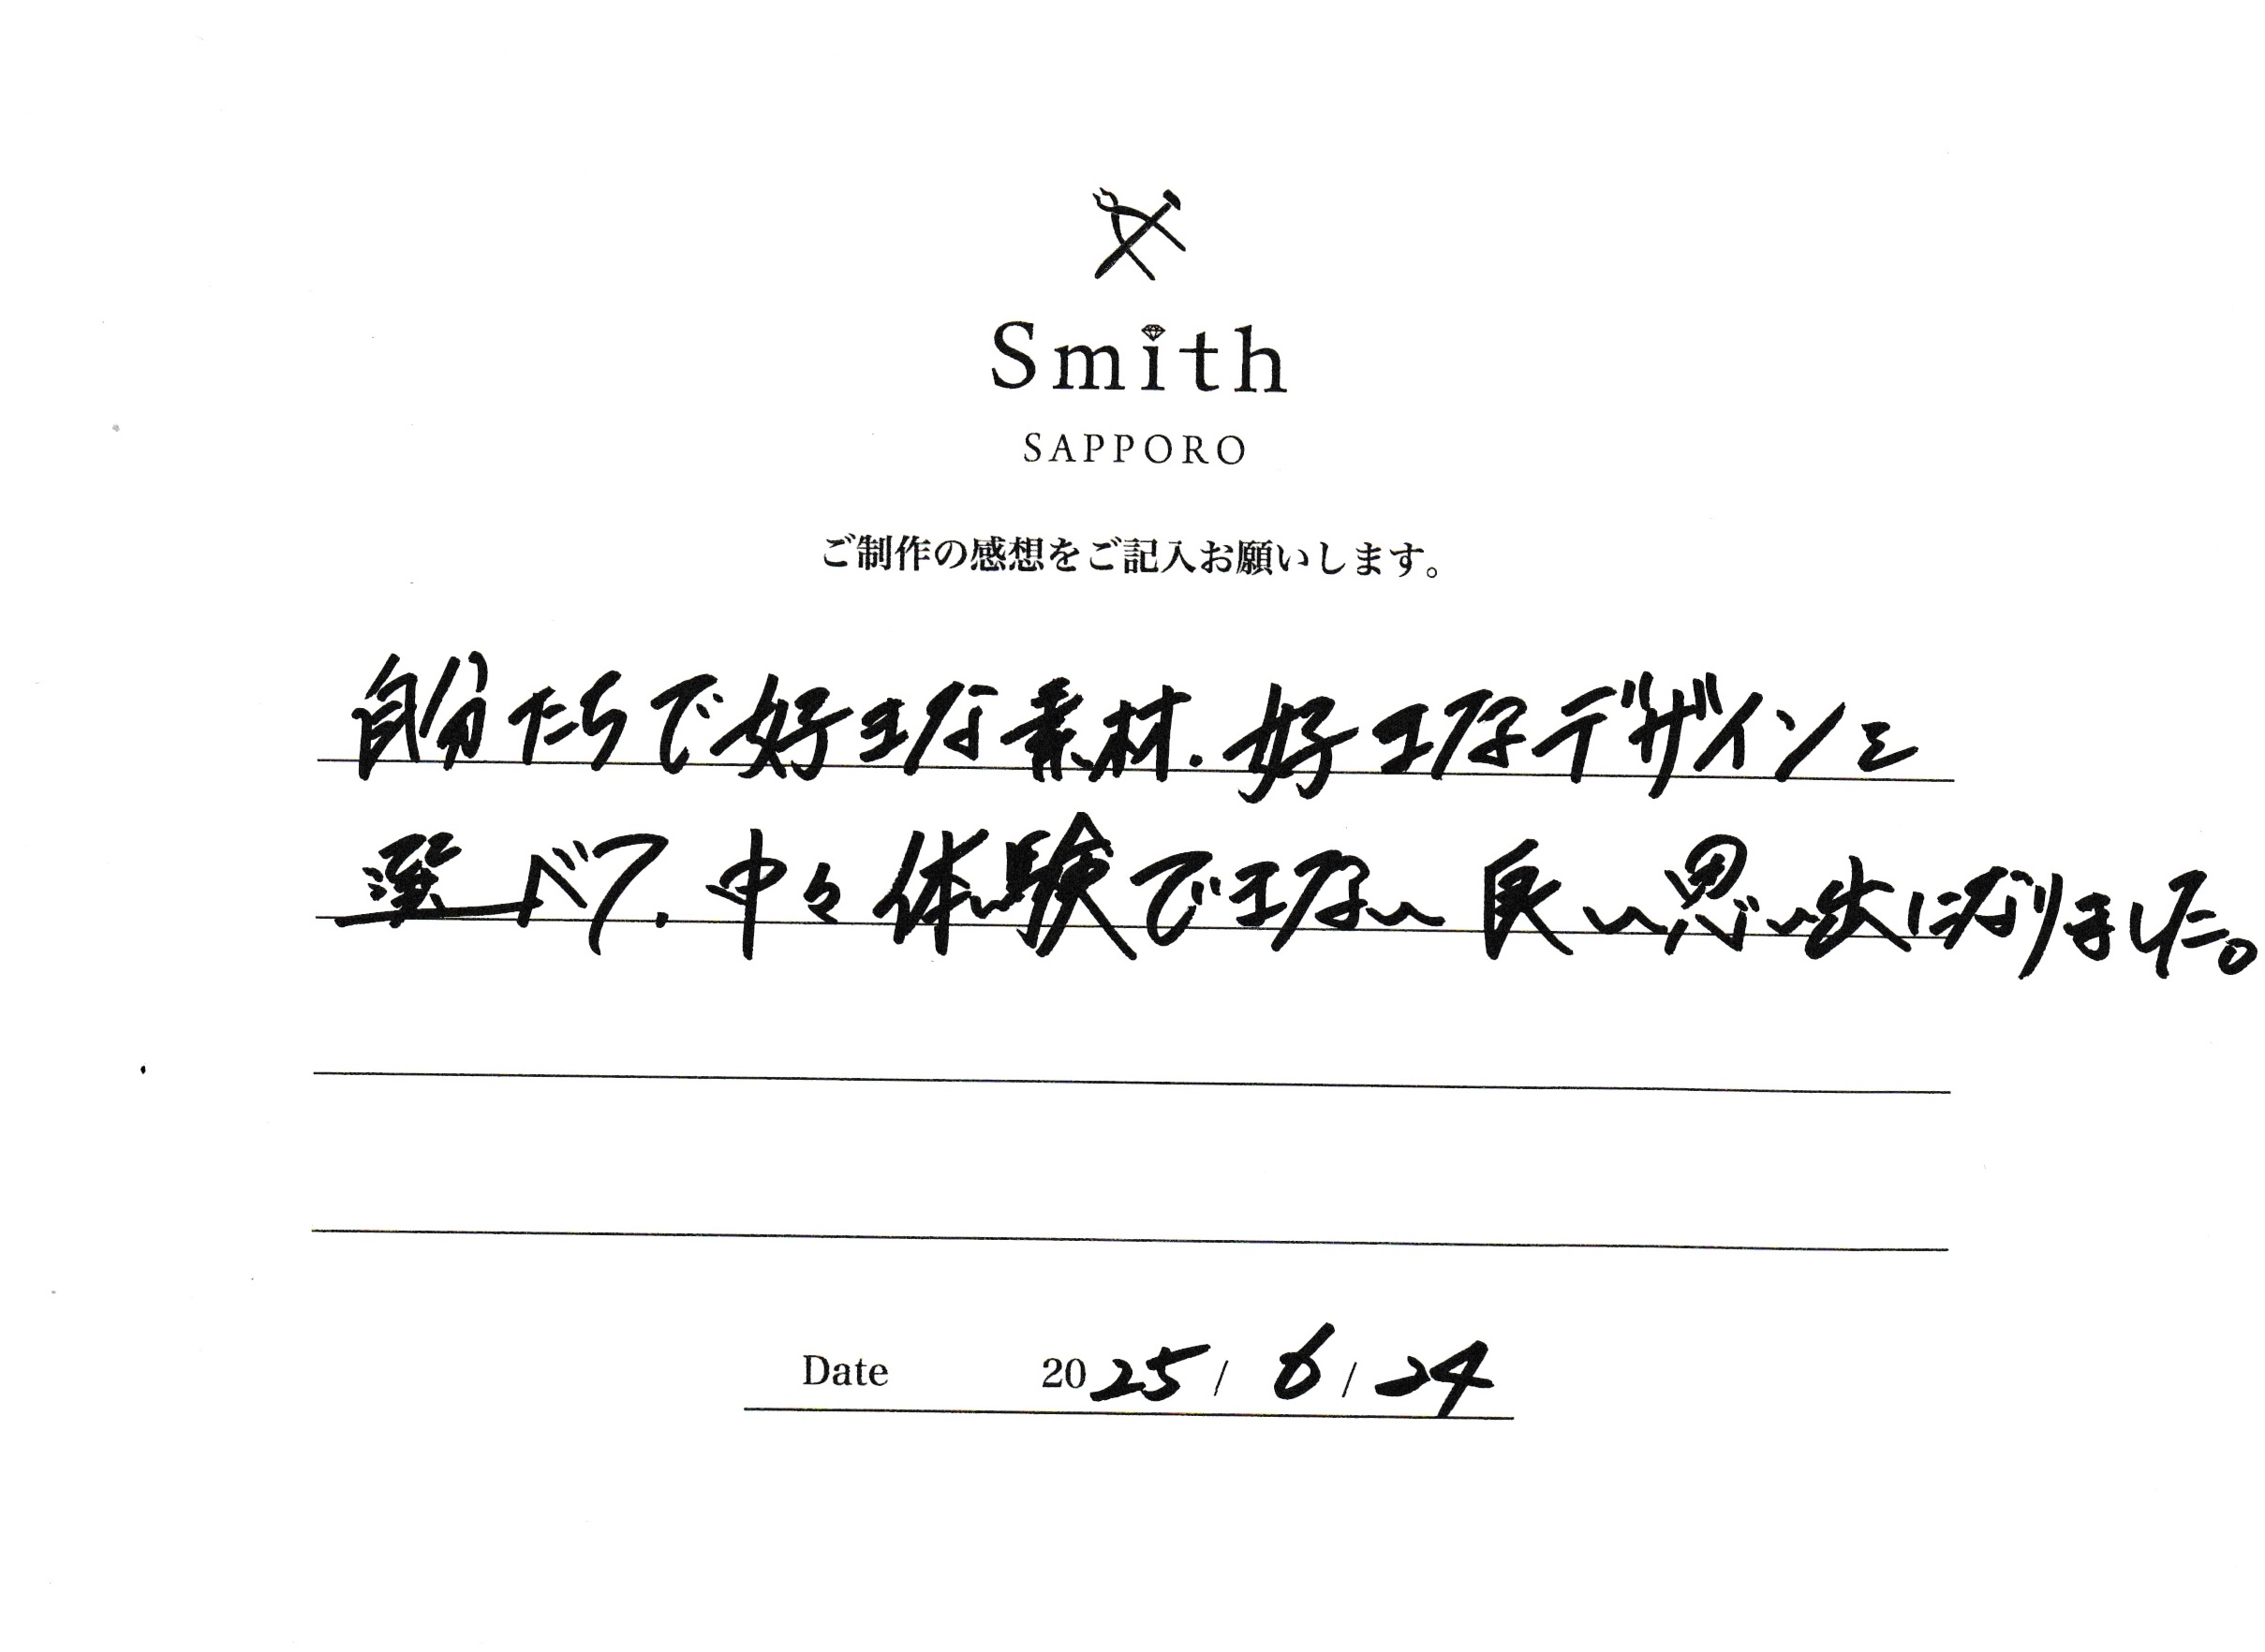 Smith
SAPPORO
ご制作の感想をご記入お願いします。
自分たちで好きな素材.好きなデザインを
選べて.中々体験できない良い思い出になりました。
Date 2025/6/24